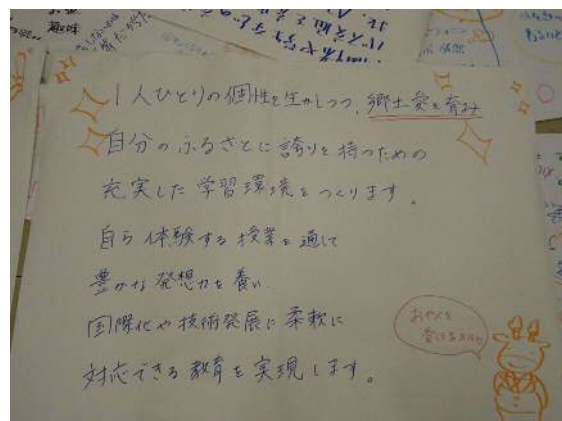 趣味
1人ひとりの個性を生かしつつ、郷土愛を育み
自分のふるさとに誇りを持つための
充実した学習環境をつくります。
自ら体験する授業を通して
豊かな発想力を養い
国際化や技術発展に柔軟に
対応できる教育を実現します。